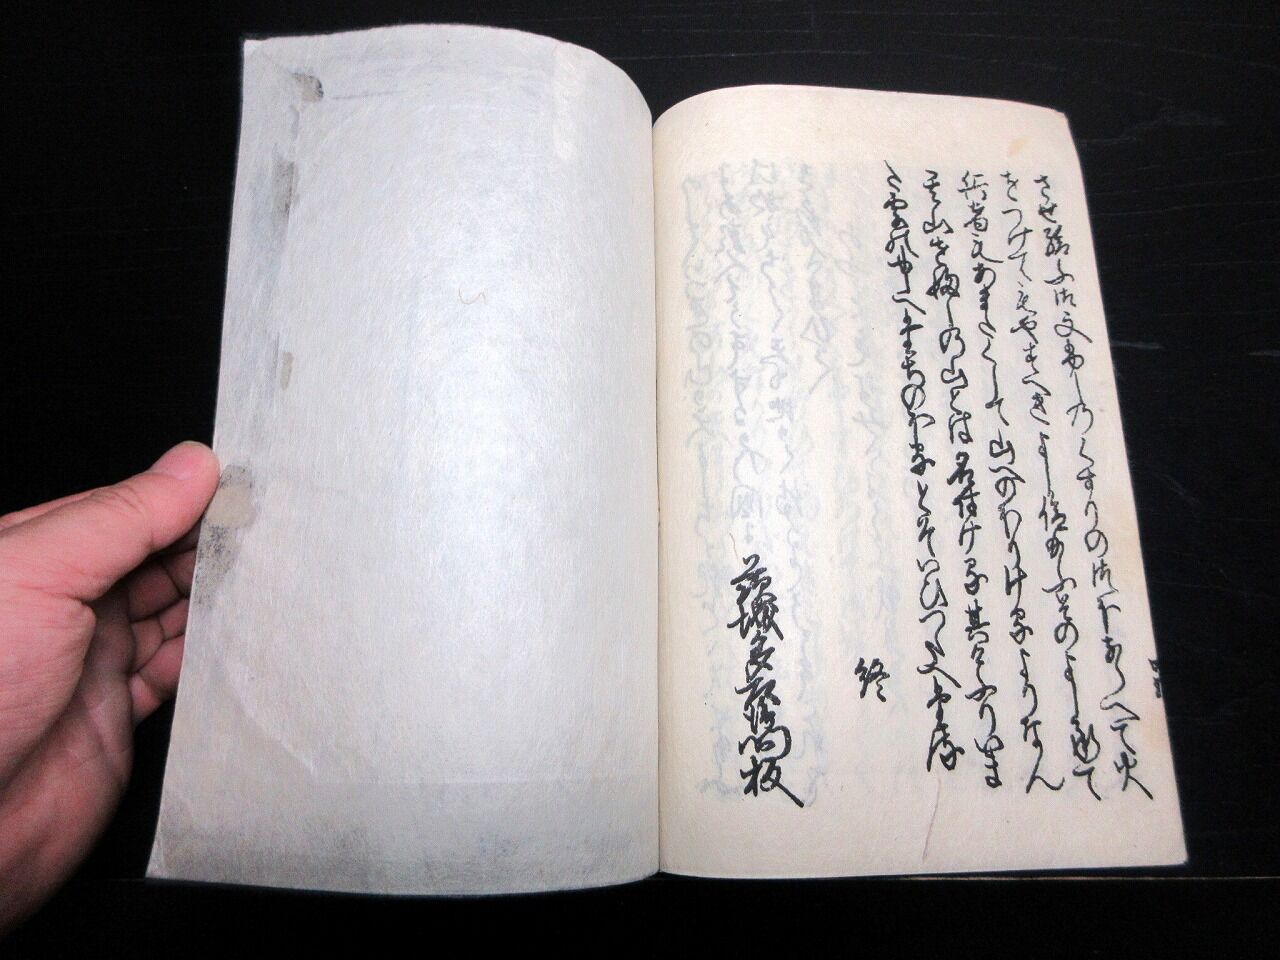 させ給ふ御文ふしのくすりの御つほならへて火
をつけてもやすへきよし仰給ふそのよし承て
兵者もあまたくして山へのほりけるよりなん
山をふしの山とは名付ける其けふりいま
た雲の中へたちのほるとそいひつたへ
終
茨城多左衛門板